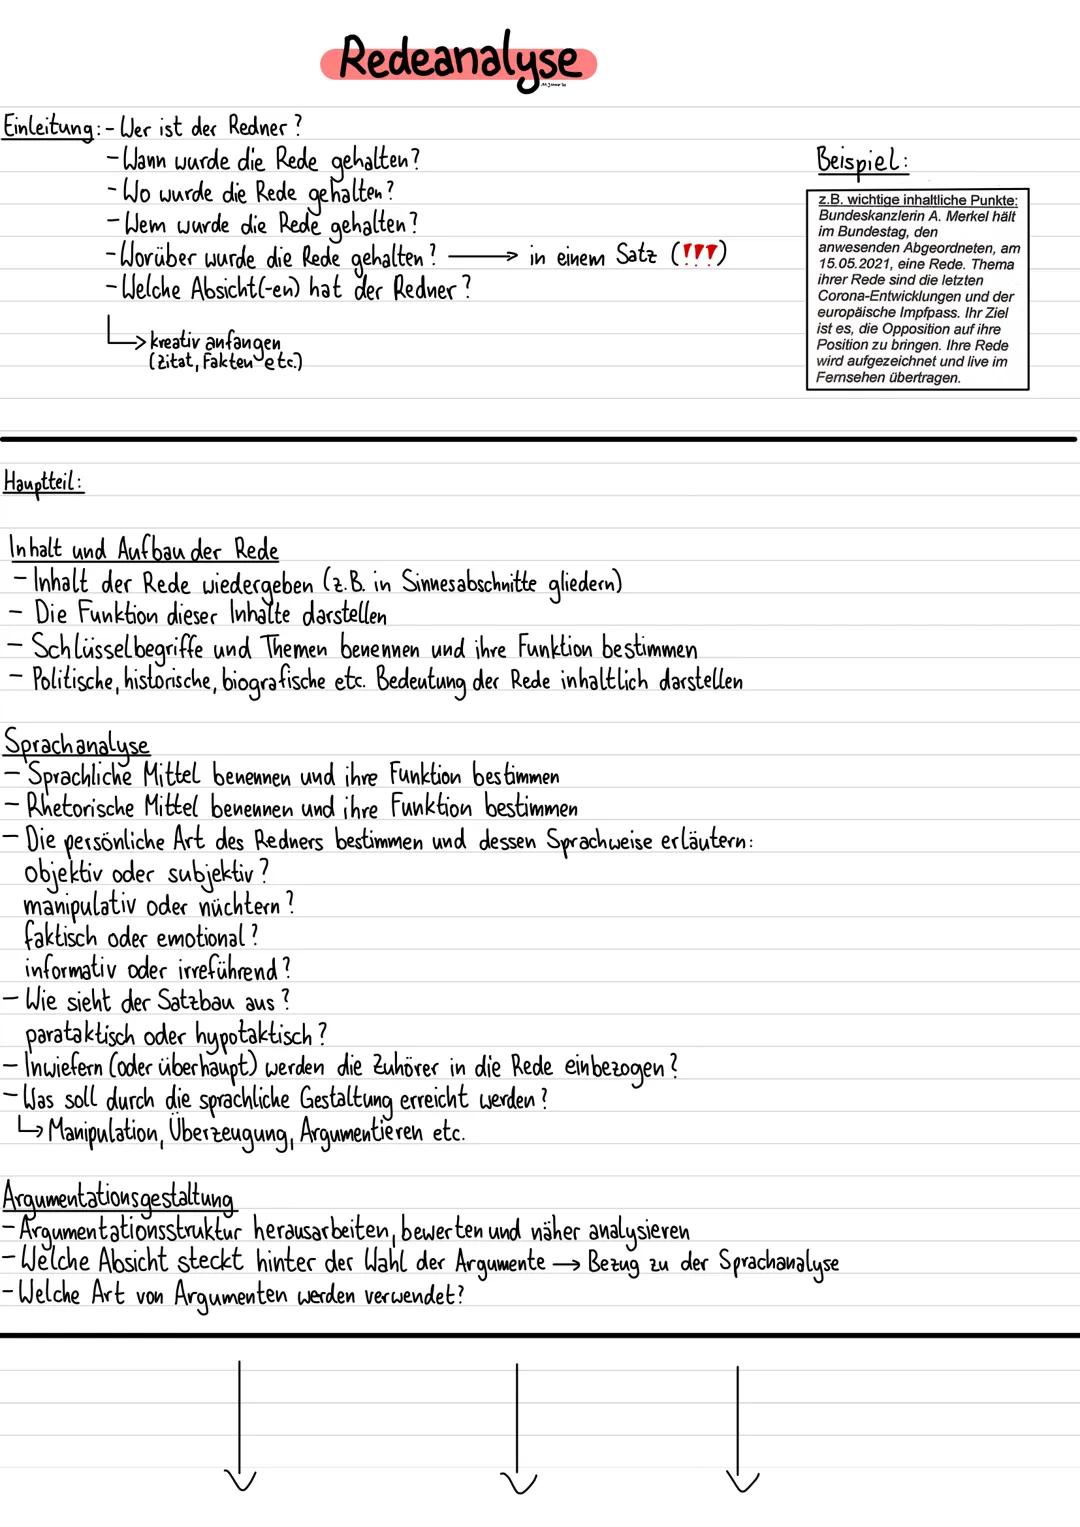 Redeanalyse
Einleitung: - Wer ist der Redner?
- Wann wurde die Rede gehalten?
- Wo wurde die Rede gehalten?
- Wem wurde die Rede gehalten?
- Worüber wurde die Rede gehalten? → in einem Satz (!!!)
- Welche Absicht(-en) hat der Redner?
↳ kreativ anfangen
(Zitat, Fakten etc.)
Beispiel:
z.B. wichtige inhaltliche Punkte:
Bundeskanzlerin A. Merkel hält
im Bundestag, den
anwesenden Abgeordneten, am
15.05.2021, eine Rede. Thema
ihrer Rede sind die letzten
Corona-Entwicklungen und der
europäische Impfpass. Ihr Ziel
ist es, die Opposition auf ihre
Position zu bringen. Ihre Rede
wird aufgezeichnet und live im
Fernsehen übertragen.
Hauptteil:
Inhalt und Aufbau der Rede
- Inhalt der Rede wiedergeben (z.B. in Sinnesabschnitte gliedern)
- Die Funktion dieser Inhalte darstellen
- Schlüsselbegriffe und Themen benennen und ihre Funktion bestimmen
- Politische, historische, biografische etc. Bedeutung der Rede inhaltlich darstellen
Sprachanalyse
- Sprachliche Mittel benennen und ihre Funktion bestimmen
- Rhetorische Mittel benennen und ihre Funktion bestimmen
- Die persönliche Art des Redners bestimmen und dessen Sprachweise erläutern:
objektiv oder subjektiv?
manipulativ oder nüchtern?
faktisch oder emotional?
informativ oder irreführend?
- Wie sieht der Satzbau aus?
parataktisch oder hypotaktisch?
- Inwiefern (oder überhaupt) werden die Zuhörer in die Rede einbezogen?
- Was soll durch die sprachliche Gestaltung erreicht werden?
↳ Manipulation, Überzeugung, Argumentieren etc.
Argumentationsgestaltung
- Argumentationsstruktur herausarbeiten, bewerten und näher analysieren
- Welche Absicht steckt hinter der Wahl der Argumente → Bezug zu der Sprachanalyse
- Welche Art von Argumenten werden verwendet?